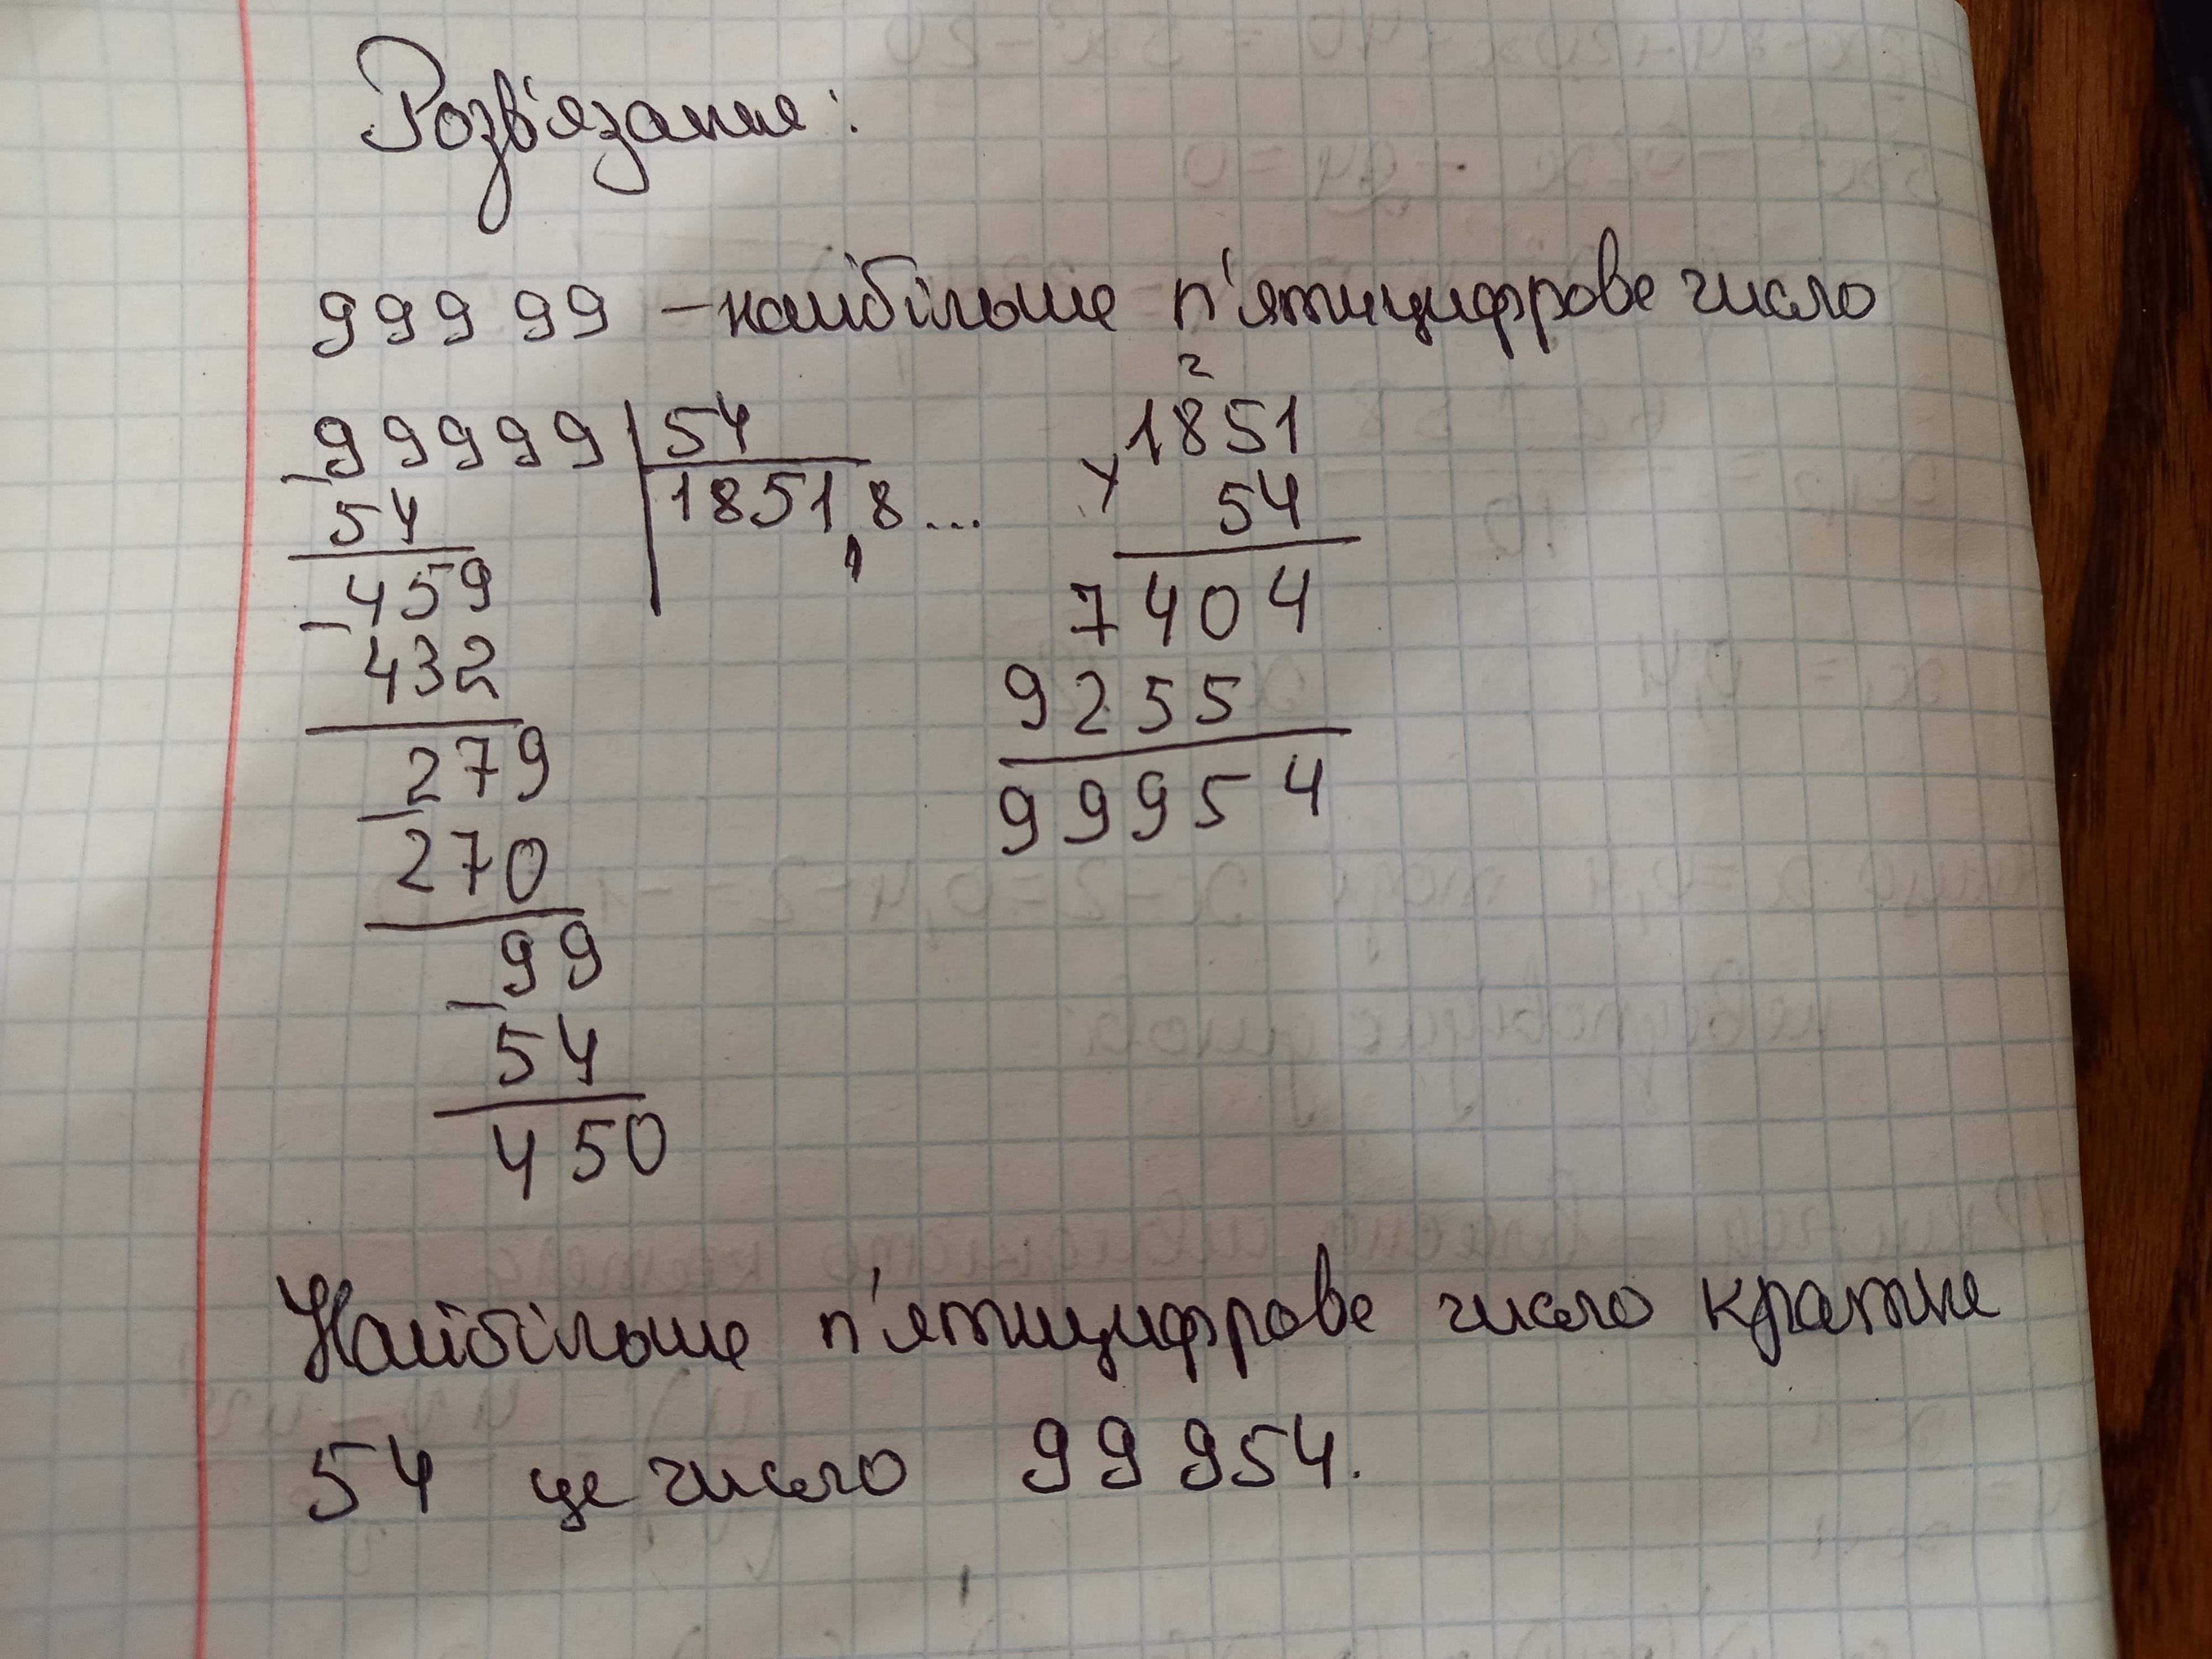 Розв'язання:
99999 – найбільше п'ятицифрове число
99999 | 54
– 54
1851,8...
– 459
432
– 279
270
– 99
54
450
2
1851
× 54
7404
9255
99954
Найбільше п'ятицифрове число кратне
54 це число 99954.